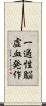 一過性脳
虚血発作